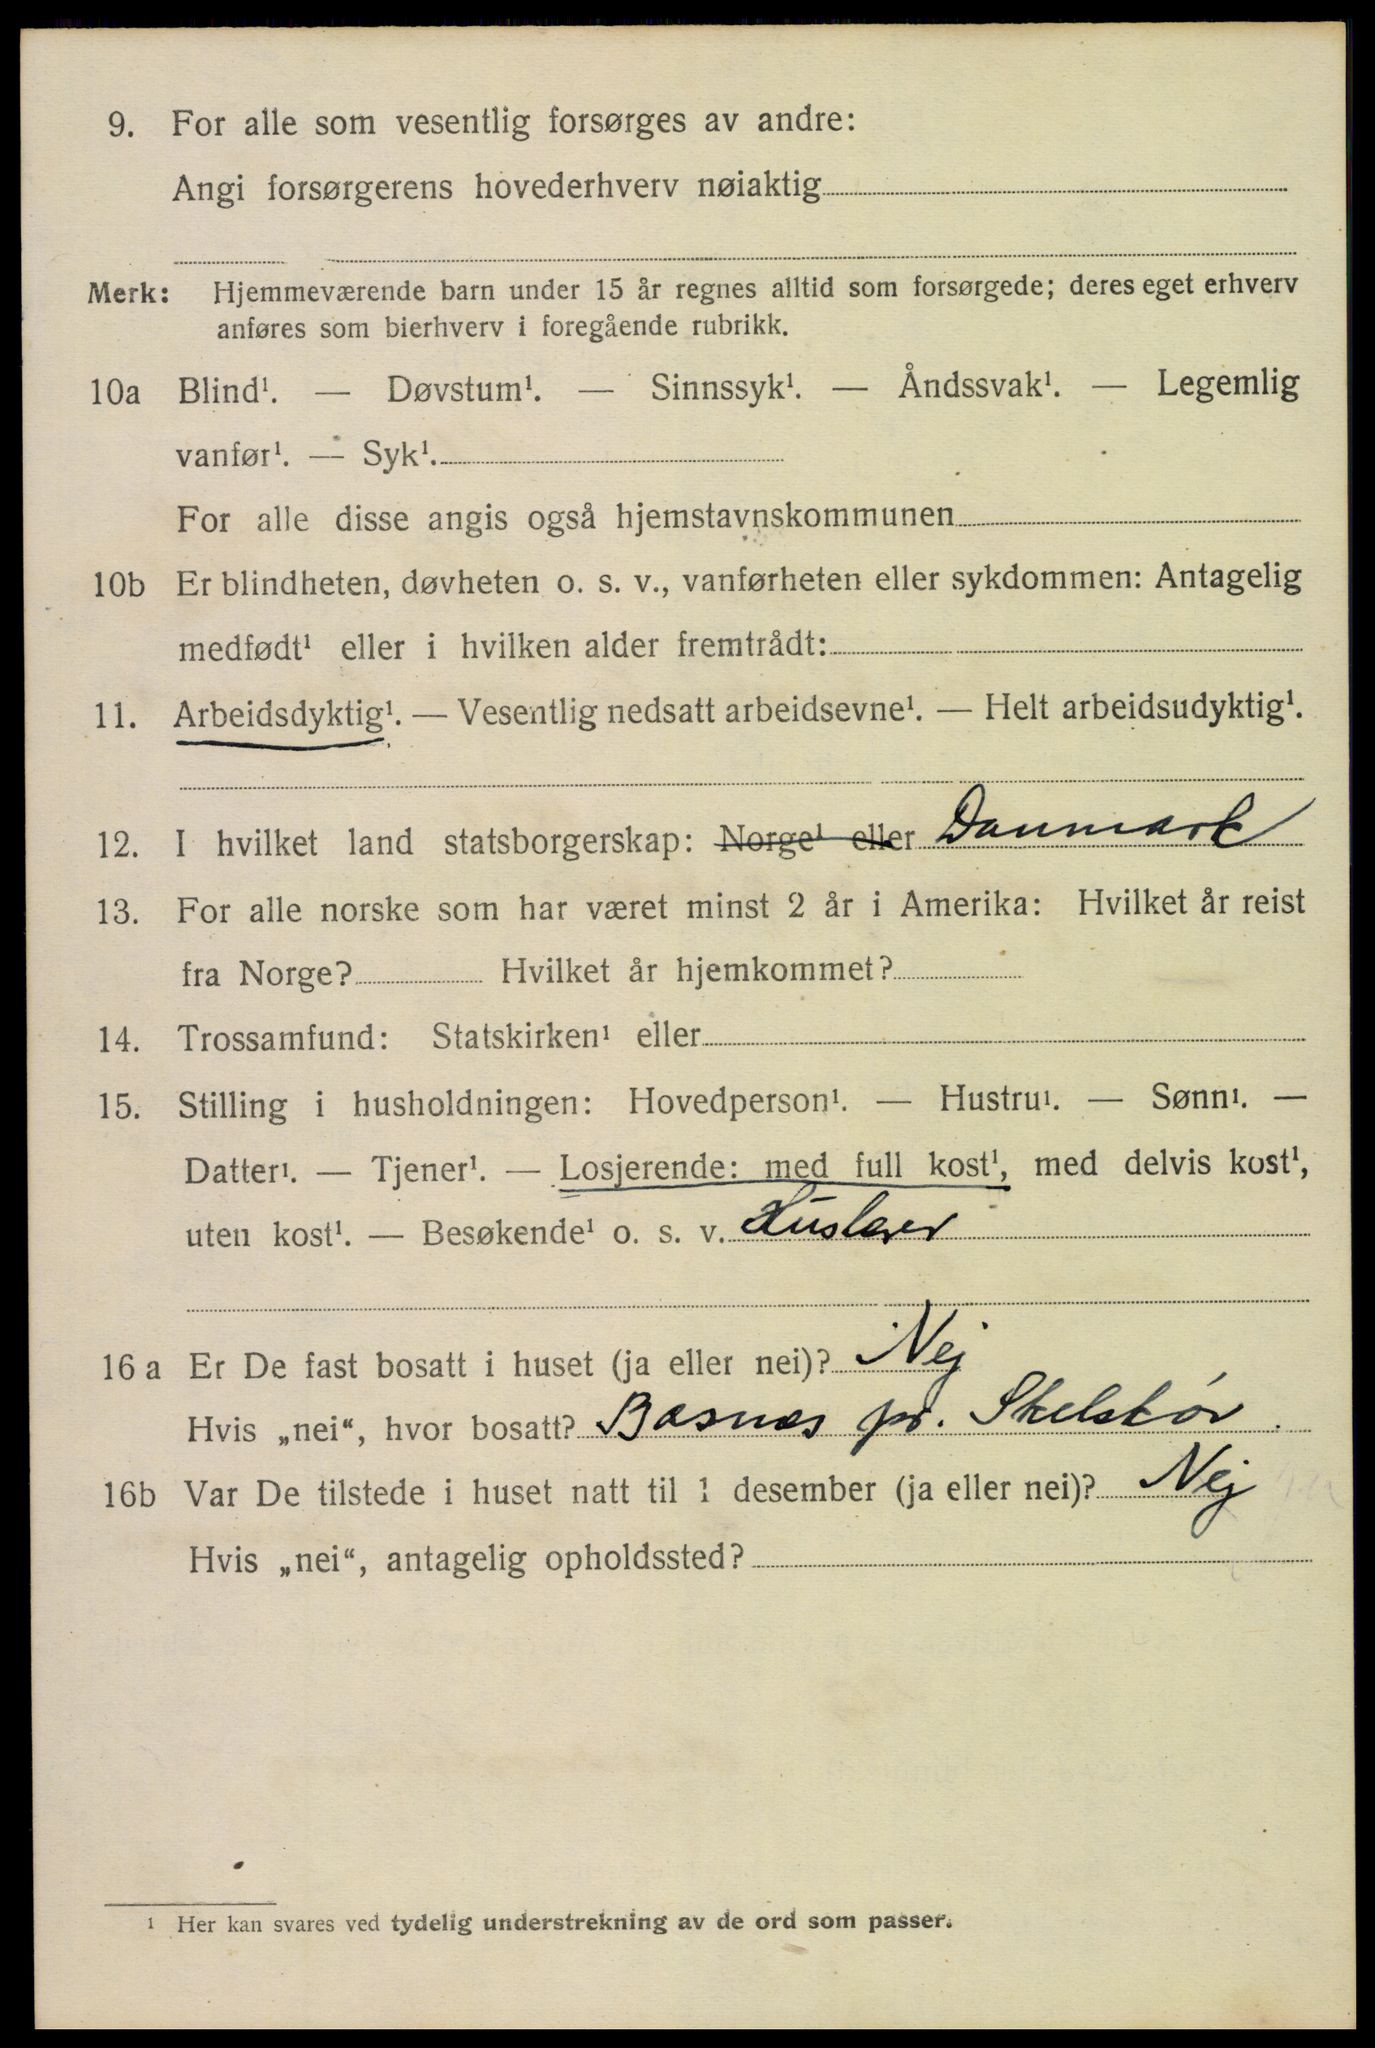 9. For alle som vesentlig forsørges av andre:
Angi forsørgerens hovederhverv nøiaktig
Merk: Hjemmeværende barn under 15 år regnes alltid som forsørgede; deres eget erhverv
anføres som bierhverv i foregående rubrikk.
10a Blind¹. — Døvstum¹. — Sinnssyk¹. — Åndssvak¹. — Legemlig
vanfør¹. — Syk¹.
For alle disse angis også hjemstavnskommunen
10b Er blindheten, døvheten o. s. v., vanførheten eller sykdommen: Antagelig
medfødt¹ eller i hvilken alder fremtrådt:
11. Arbeidsdyktig¹. — Vesentlig nedsatt arbeidsevne¹. — Helt arbeidsudyktig¹.
12. I hvilket land statsborgerskap: Norge¹ eller Danmark
13. For alle norske som har været minst 2 år i Amerika: Hvilket år reist
fra Norge? Hvilket år hjemkommet?
14. Trossamfund: Statskirken¹ eller
15. Stilling i husholdningen: Hovedperson¹. — Hustru¹. — Sønn¹. —
Datter¹. — Tjener¹. — Losjerende: med full kost¹, med delvis kost¹,
uten kost¹. — Besøkende¹ o. s. v. Huslærer
16 a Er De fast bosatt i huset (ja eller nei)? Nej
Hvis „nei“, hvor bosatt? Basnæs pr. Skelskør.
16b Var De tilstede i huset natt til 1 desember (ja eller nei)? Nej
Hvis „nei“, antagelig opholdssted?
¹ Her kan svares ved tydelig understrekning av de ord som passer.